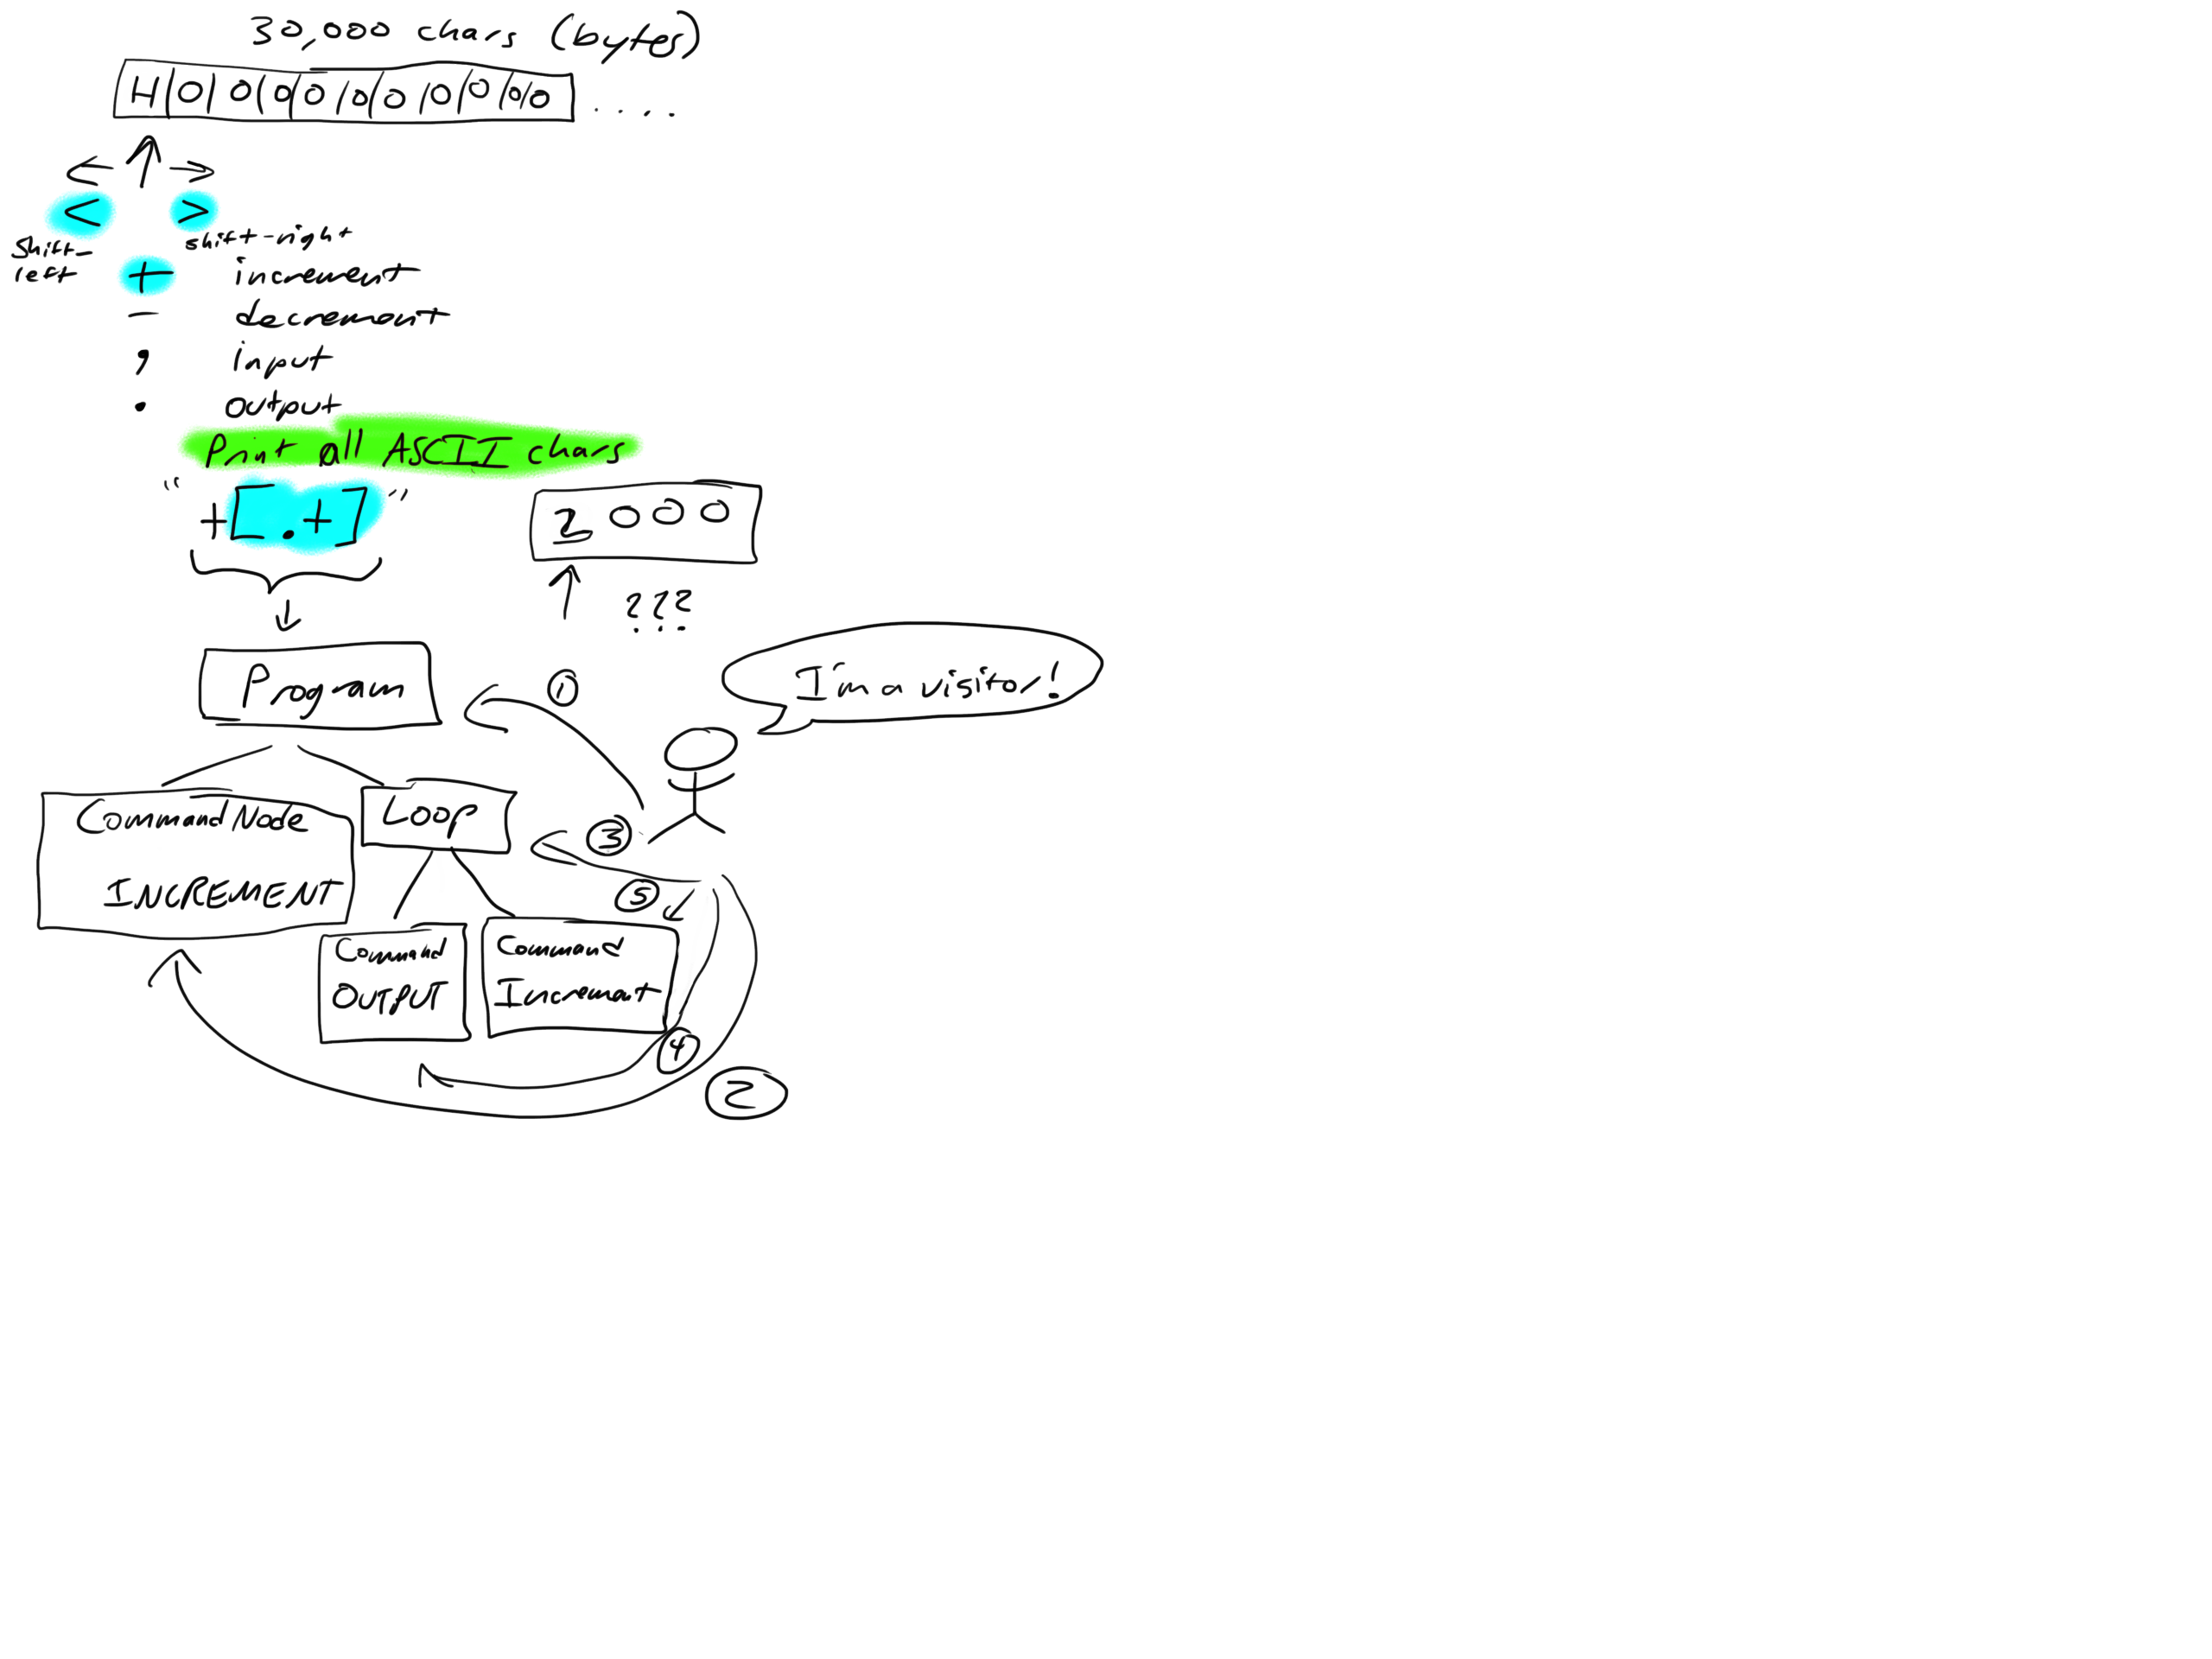 30,000 chars (bytes)
H|0|0|0|0|0|0|0|0|0|0 ....
< >
shift-left
shift-right
+ increment
- decrement
, input
. output
Print all ASCII chars
"+[.+]"
2 0 0 0
???
I'm a visitor!
Program
1
CommandNode
INCREMENT
Loop
3
5
Command
OUTPUT
Command
Increment
4
2